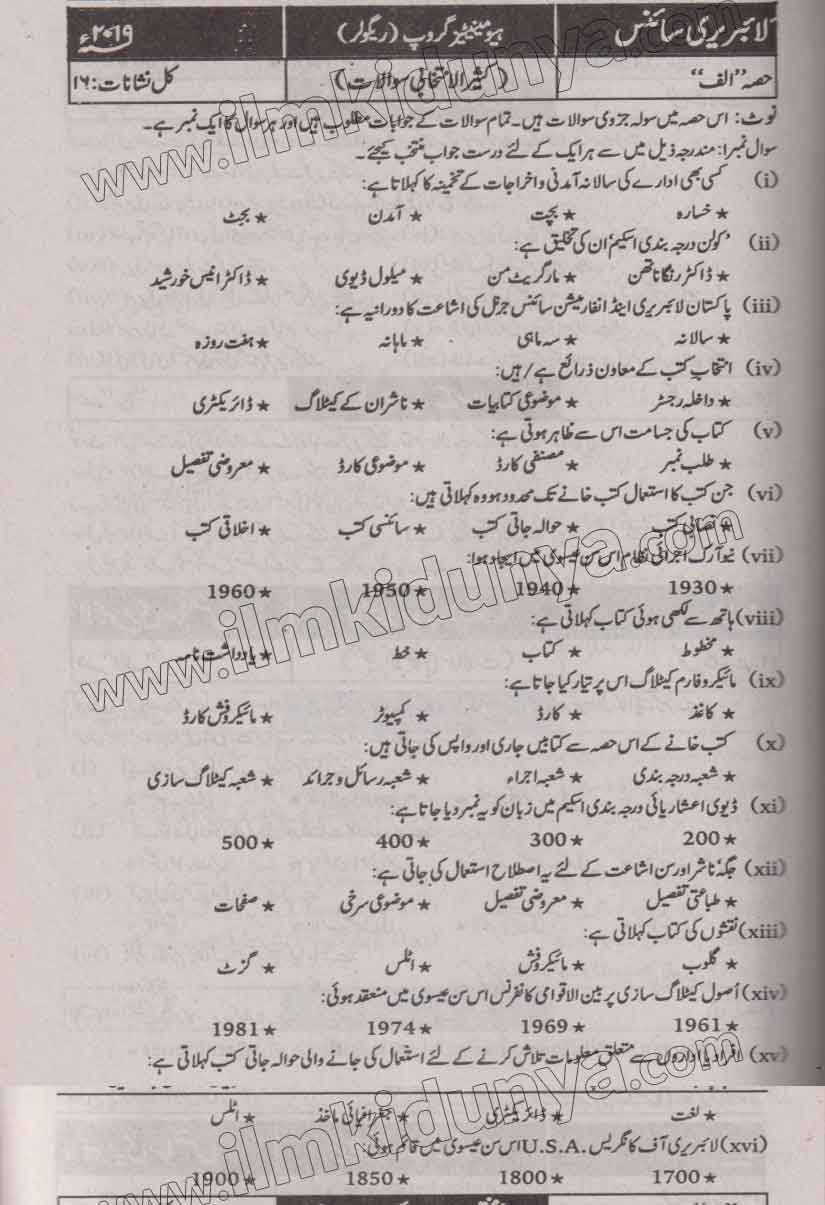 لائبریری سائنس ہیومینٹیز گروپ (ریگولر) ۲۰۱۹ء
حصہ ”الف“ (کثیر الانتخابی سوالات) کل نشانات: ۱۶
نوٹ: اس حصہ میں سولہ جزوی سوالات ہیں۔ تمام سوالات کے جوابات مطلوب ہیں اور ہر سوال کا ایک نمبر ہے۔
سوال نمبر۱: مندرجہ ذیل میں سے ہر ایک کے لئے درست جواب منتخب کیجئے۔
(i) کسی بھی ادارے کی سالانہ آمدنی و اخراجات کے تخمینہ کا کہلاتا ہے:
★ خسارہ ★ بچت ★ آمدن ★ بجٹ
(ii) ’کولن درجہ بندی اسکیم‘ ان کی تخلیق ہے:
★ ڈاکٹر رنگاناتھن ★ مارگریٹ من ★ میلول ڈیوی ★ ڈاکٹر انیس خورشید
(iii) پاکستان لائبریری اینڈ انفارمیشن سائنس جرنل کی اشاعت کا دورانیہ ہے:
★ سالانہ ★ سہ ماہی ★ ماہانہ ★ ہفت روزہ
(iv) انتخاب کتب کے معاون ذرائع ہے/ہیں:
★ داخلہ رجسٹر ★ موضوعی کتابیات ★ ناشران کے کیٹلاگ ★ ڈائریکٹری
(v) کتاب کی جسامت اس سے ظاہر ہوتی ہے:
★ طلب نمبر ★ مصنفی کارڈ ★ موضوعی کارڈ ★ معروضی تفصیل
(vi) جن کتب کا استعمال کتب خانے تک محدود ہو وہ کہلاتی ہیں:
★ نصابی کتب ★ حوالہ جاتی کتب ★ سائنسی کتب ★ اخلاقی کتب
(vii) نیوآرک اجرائی نظام اس سن عیسوی میں ایجاد ہوا:
★ 1930 ★ 1940 ★ 1950 ★ 1960
(viii) ہاتھ سے لکھی ہوئی کتاب کہلاتی ہے:
★ مخطوط ★ کتاب ★ خط ★ یادداشت نامہ
(ix) مائیکروفارم کیٹلاگ اس پر تیار کیا جاتا ہے:
★ کاغذ ★ کارڈ ★ کمپیوٹر ★ مائیکروفش کارڈ
(x) کتب خانے کے اس حصہ سے کتابیں جاری اور واپس کی جاتی ہیں:
★ شعبہ درجہ بندی ★ شعبہ اجراء ★ شعبہ رسائل و جرائد ★ شعبہ کیٹلاگ سازی
(xi) ڈیوی اعشاریائی درجہ بندی اسکیم میں زبان کو یہ نمبر دیا جاتا ہے:
★ 200 ★ 300 ★ 400 ★ 500
(xii) جگہ ناشر اور سن اشاعت کے لئے یہ اصطلاح استعمال کی جاتی ہے:
★ طباعتی تفصیل ★ معروضی تفصیل ★ موضوعی سرخی ★ صفحات
(xiii) نقشوں کی کتاب کہلاتی ہے:
★ گلوب ★ مائیکروفش ★ اٹلس ★ گزٹ
(xiv) اُصول کیٹلاگ سازی پر بین الاقوامی کانفرنس اس سن عیسوی میں منعقد ہوئی:
★ 1961 ★ 1969 ★ 1974 ★ 1981
(xv) افراد یا اداروں سے متعلق معلومات تلاش کرنے کے لئے استعمال کی جانے والی حوالہ جاتی کتب کہلاتی ہے:
★ لغت ★ ڈائریکٹری ★ جغرافیائی ماخذ ★ اٹلس
(xvi) لائبریری آف کانگریس .U.S.A اس سن عیسوی میں قائم ہوئی:
★ 1700 ★ 1800 ★ 1850 ★ 1900
www.ilmkidunya.com
www.ilmkidunya.com
www.ilmkidunya.com